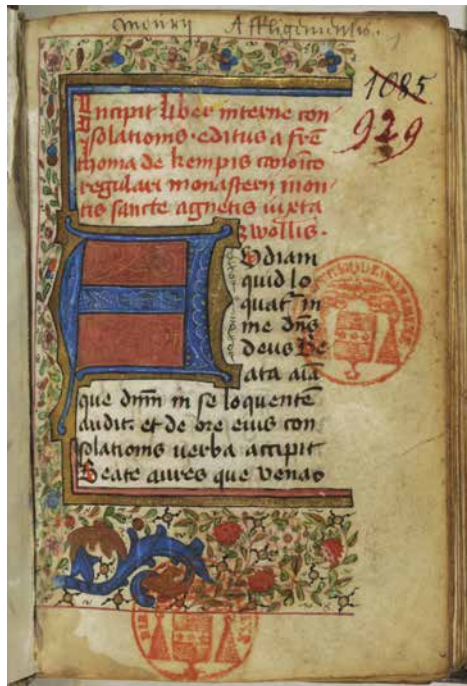 Affligeniensis.
1085
929
Incipit liber interne con
solationis. editus a fr̄e
thoma de kempis canōico
regulari monasterii mon
tis sancte agnetis iuxta
zwollis.
Audiam
quid lo
quat̄ in
me dn̄s
deus Be
ata aīa
que dn̄m in se loquentē
audit. et de ore eius con
solationis verba accipit
Beate aures que venas